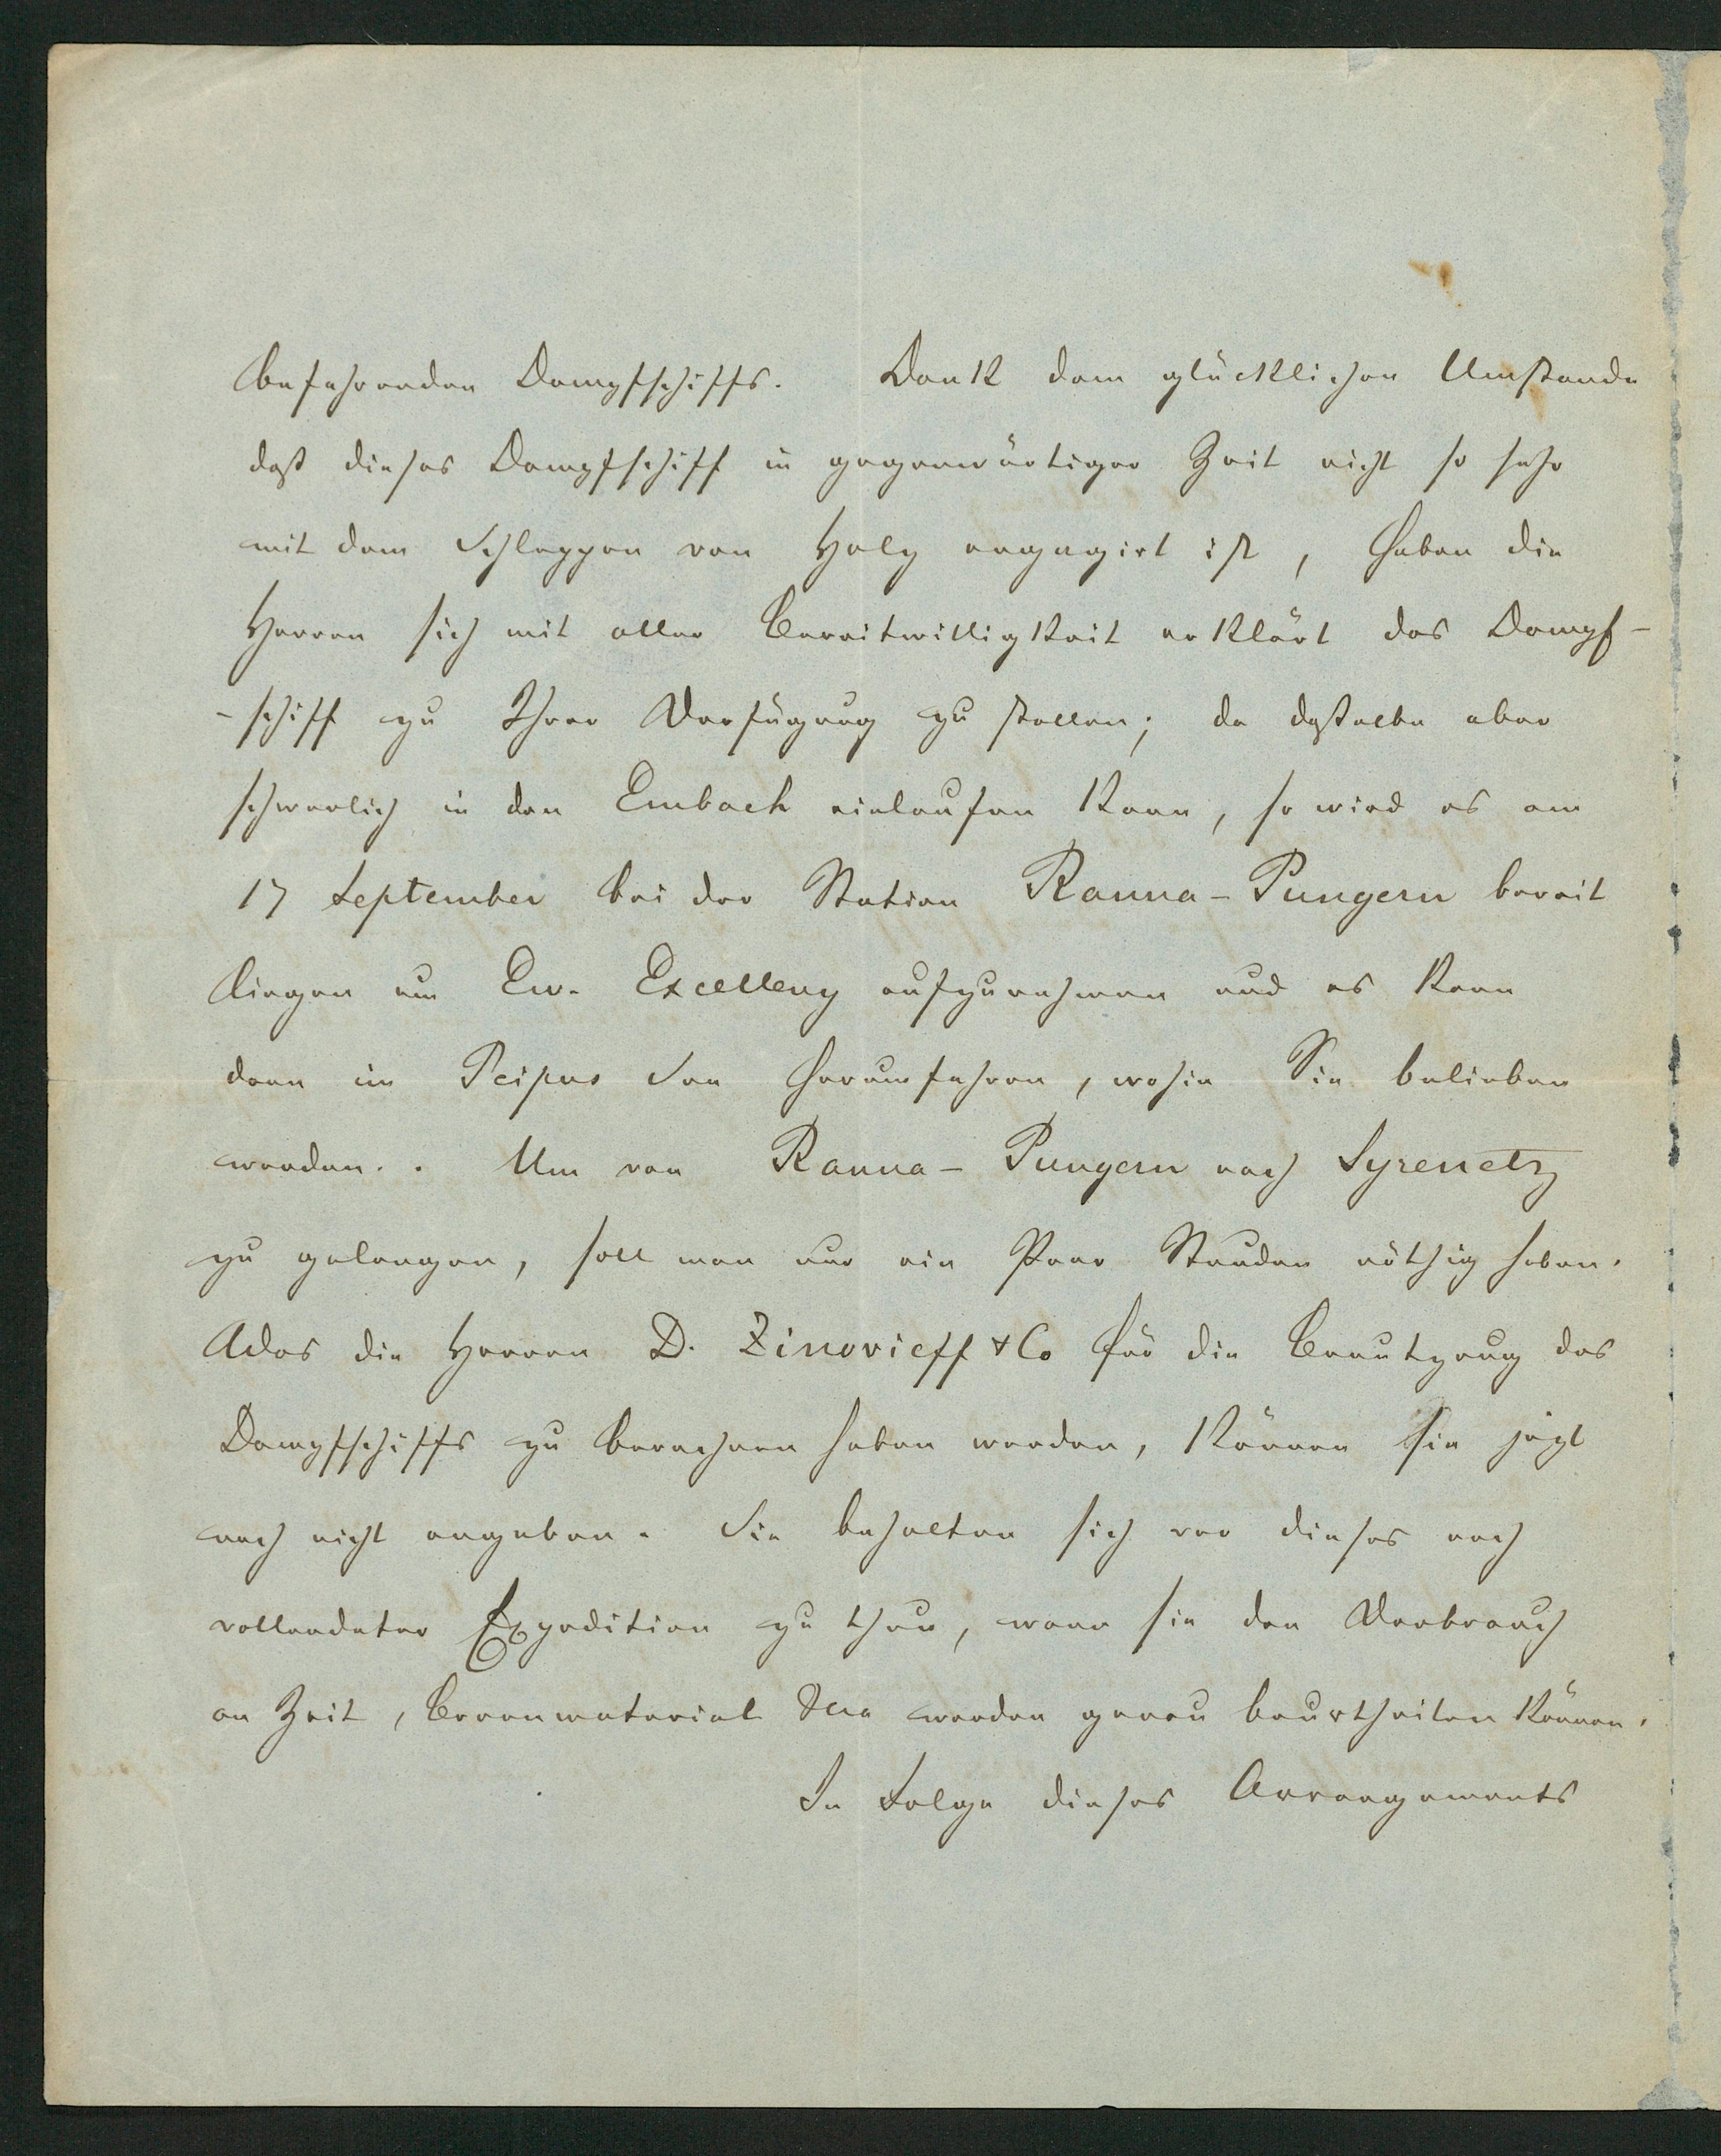 befahrenden Dampfschiffs. Dank dem glücklichen Umstande
daß dieses Dampfschiff in gegenwärtiger Zeit nicht so sehr
mit dem Schleppen von Holz engagirt ist, haben die
Herren sich mit aller Bereitwilligkeit erklärt das Dampf-
-schiff zu Ihrer Verfügung zu stellen; da dasselbe aber
schwerlich in den Embach einlaufen kann, so wird es am
17 September bei der Station Ranna-Pungern bereit
liegen um Ew. Excellenz aufzunehmen und es kann
dann im Peipus See herumfahren, wohin Sie belieben
werden.. Um von Ranna-Pungern nach Syrenetz
zu gelangen, soll man nur ein Paar Stunden nöthig haben.
Was die Herren D. Zinovieff & Co für die Benutzung des
Dampfschiffs zu berechnen haben werden, können sie jetzt
noch nicht angeben. Sie behalten sich vor dieses nach
vollendeter Expedition zu thun, wenn sie den Verbrauch
an Zeit, Brennmaterial werden genau beurtheilen können.
In Folge dieses Arrangements